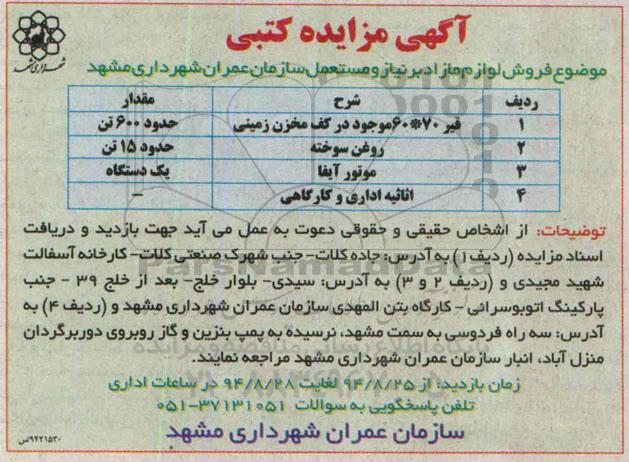 آگهی مزایده کتبی
شهرداری مشهد
موضوع فروش لوازم مازاد بر نیاز و مستعمل سازمان عمران شهرداری مشهد
ردیف شرح مقدار
۱ قیر ۷۰*۶۰ موجود در کف مخزن زمینی حدود ۶۰۰ تن
۲ روغن سوخته حدود ۱۵ تن
۳ موتور آیفا یک دستگاه
۴ اثاثیه اداری و کارگاهی –
توضیحات: از اشخاص حقیقی و حقوقی دعوت به عمل می آید جهت بازدید و دریافت
اسناد مزایده (ردیف ۱) به آدرس: جاده کلات- جنب شهرک صنعتی کلات- کارخانه آسفالت
شهید مجیدی و (ردیف ۲ و ۳) به آدرس: سیدی- بلوار خلج- بعد از خلج ۳۹ - جنب
پارکینگ اتوبوسرانی- کارگاه بتن المهدی سازمان عمران شهرداری مشهد و (ردیف ۴) به
آدرس: سه راه فردوسی به سمت مشهد، نرسیده به پمپ بنزین و گاز روبروی دوربرگردان
منزل آباد، انبار سازمان عمران شهرداری مشهد مراجعه نمایند.
زمان بازدید: از ۹۴/۸/۲۵ لغایت ۹۴/۸/۲۸ در ساعات اداری
تلفن پاسخگویی به سوالات ۳۷۱۳۱۰۵۱-۰۵۱
سازمان عمران شهرداری مشهد
۹۴۲۱۵۳۰/س
ParsNamadData